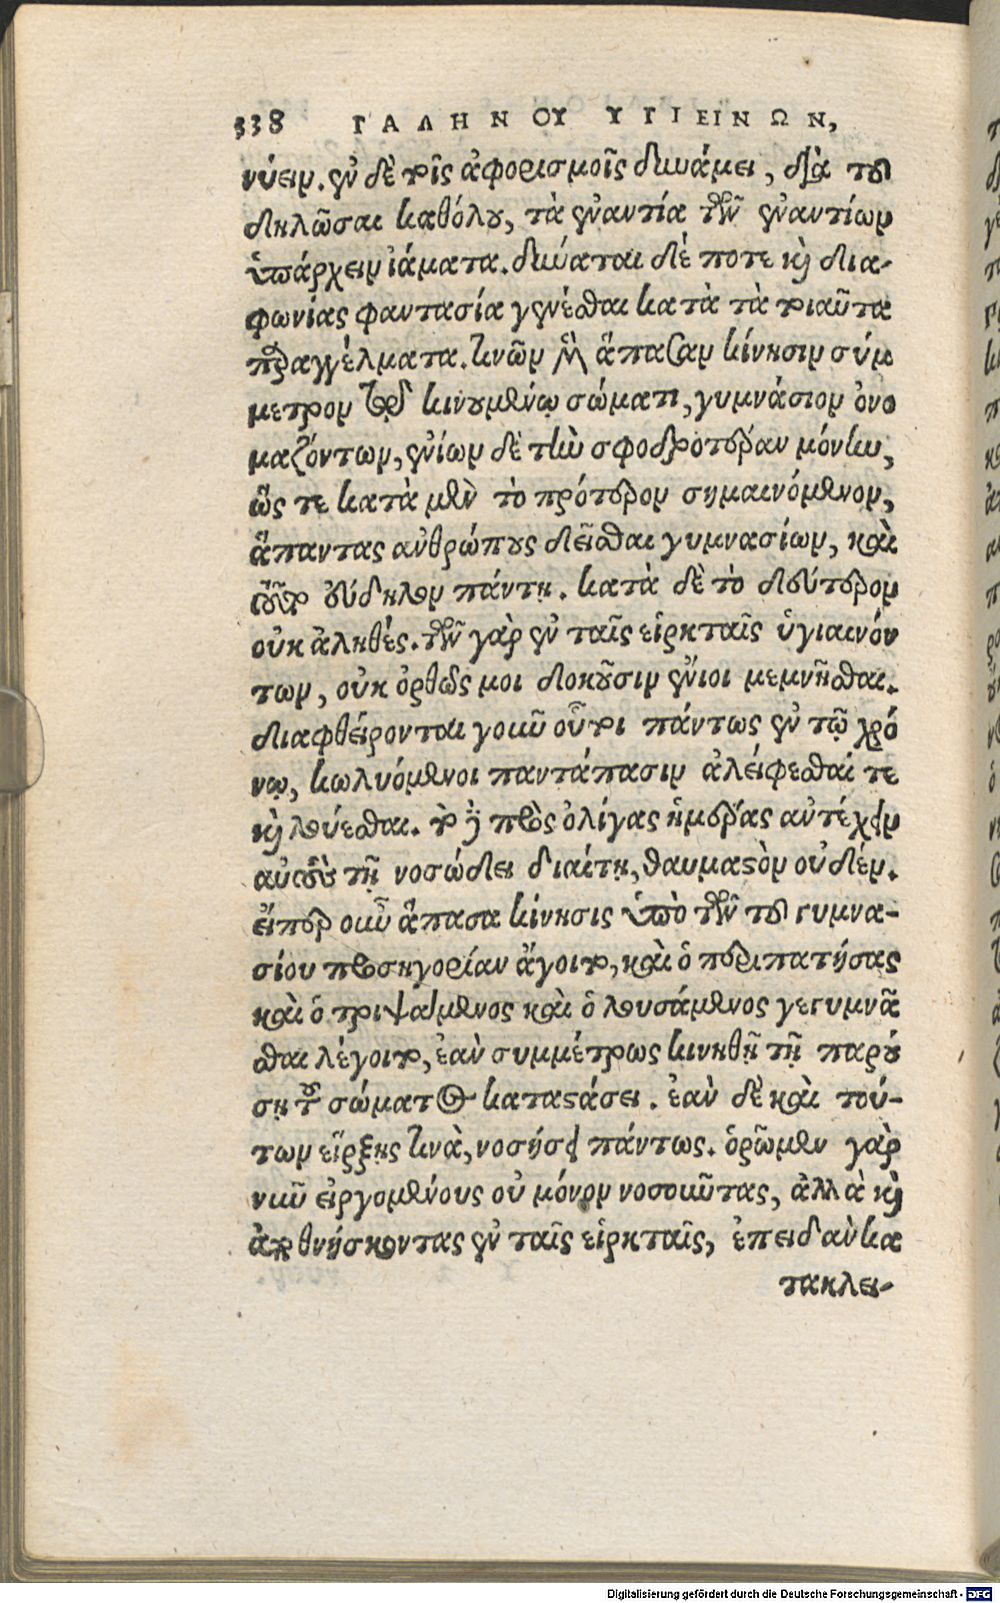 338 ΓΑΛΗΝΟΥ ΥΓΙΕΙΝΩΝ,
νύειν. ἐν δὲ τοῖς ἀφορισμοῖς δυνάμει, διὰ τοῦ
δηλῶσαι καθόλου, τὰ ἐναντία τῶν ἐναντίων
ὑπάρχειν ἰάματα. δύναται δέ ποτε καὶ δια-
φωνίας φαντασία γενέσθαι κατὰ τὰ τοιαῦτα
παραγγέλματα. τινῶν μὲν ἅπασαν κίνησιν σύμ
μετρον τῷ κινουμένῳ σώματι, γυμνάσιον ὀνο
μαζόντων, ἐνίων δὲ τὴν σφοδροτέραν μόνην,
ὥς τε κατὰ μὲν τὸ πρότερον σημαινόμενον,
ἅπαντας ἀνθρώπους δεῖσθαι γυμνασίων, καὶ
τοῦτο εὔδηλον πάντη. κατὰ δὲ τὸ δεύτερον
οὐκ ἀληθές. τῶν γὰρ ἐν ταῖς εἱρκταῖς ὑγιαινόν
των, οὐκ ὀρθῶς μοι δοκοῦσιν ἔνιοι μεμνῆσθαι.
διαφθείρονται γοῦν οὗτοι πάντως ἐν τῷ χρό
νῳ, κωλυόμενοι παντάπασιν ἀλείφεσθαί τε
καὶ λούεσθαι. τὸ δὲ πρὸς ὀλίγας ἡμέρας ἀντέχειν
αὐτοὺς τῇ νοσώδει διαίτῃ, θαυμαστὸν οὐδέν.
εἴπερ οὖν ἅπασα κίνησις ὑπὸ τῶν τοῦ γυμνα-
σίου προσηγορίαν ἄγοιτο, καὶ ὁ περιπατήσας
καὶ ὁ τριψάμενος καὶ ὁ λουσάμενος γεγυμνᾶ
σθαι λέγοιτο, ἐὰν συμμέτρως κινηθῇ τῇ παρού
σῃ τοῦ σώματος καταστάσει. ἐὰν δὲ καὶ τού-
των εἴρξῃς τινὰ, νοσήσει πάντως. ὁρῶμεν γὰρ
νῦν εἰργομένους οὐ μόνον νοσοῦντας, ἀλλὰ καὶ
ἀποθνήσκοντας ἐν ταῖς εἱρκταῖς, ἐπειδὰν κα
τακλει-
Digitalisierung gefördert durch die Deutsche Forschungsgemeinschaft - DFG